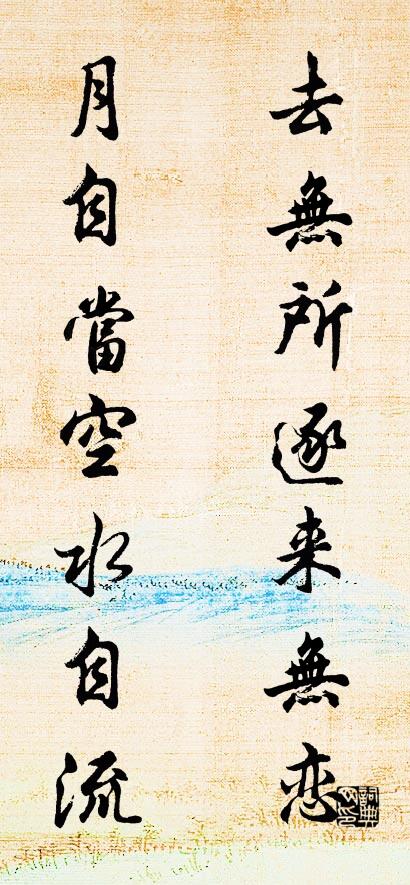 去無所逐来無恋
月自當空水自流
詞典